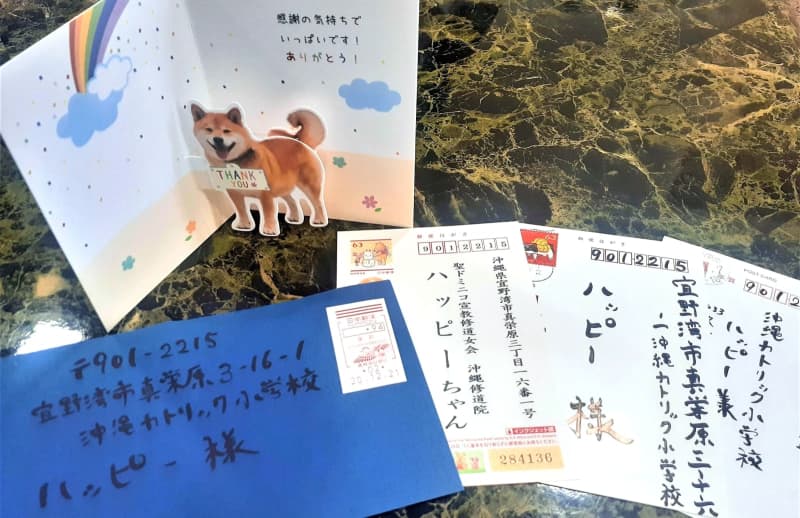 感謝の気持ちで
いっぱいです！
ありがとう！
THANK
YOU
〒901-2215
宜野湾市真栄原3-16-1
沖縄カトリック小学校
ハッピー様
20.12.21
63
郵便はがき
9012215
沖縄県宜野湾市真栄原三丁目一六番一号
聖ドミニコ宣教修道女会 沖縄修道院
ハッピーちゃん
インクジェット紙
284136
郵便はがき
9012215
宜野湾市真栄原三十六
一沖縄カトリック小学校
ハッピー
様
POST CARD
9012
沖縄カトリック小学校
ハッピー 様